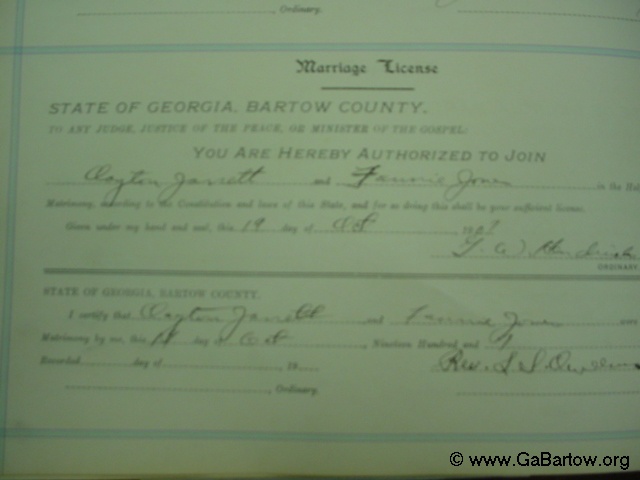 Ordinary.
Marriage License
STATE OF GEORGIA, BARTOW COUNTY.
TO ANY JUDGE, JUSTICE OF THE PEACE, OR MINISTER OF THE GOSPEL:
YOU ARE HEREBY AUTHORIZED TO JOIN
Clayton Jarrett and Fannie Jones in the
Matrimony, according to the Constitution and laws of this State, and for so doing this shall be your sufficient license.
Given under my hand and seal, this 19 day of Oct 190
G. W. Hendricks
ORDINARY.
STATE OF GEORGIA, BARTOW COUNTY.
I certify that Clayton Jarrett and Fannie Jones were
Matrimony by me, this day of Oct, Nineteen Hundred and
Recorded day of 19 Rev. S. S.
Ordinary.
© www.GaBartow.org